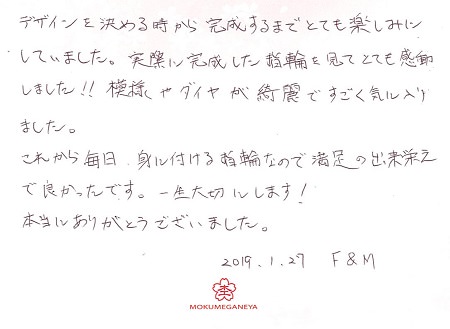 デザインを決める時から完成するまでとても楽しみに
していました。実際に完成した指輪を見てとても感動
しました!!模様やダイヤが綺麗ですごく気に入り
ました。
これから毎日、身に付ける指輪なので満足の出来栄え
で良かったです。一生大切にします!
本当にありがとうございました。
2019.1.27 F&M
MOKUMEGANEYA